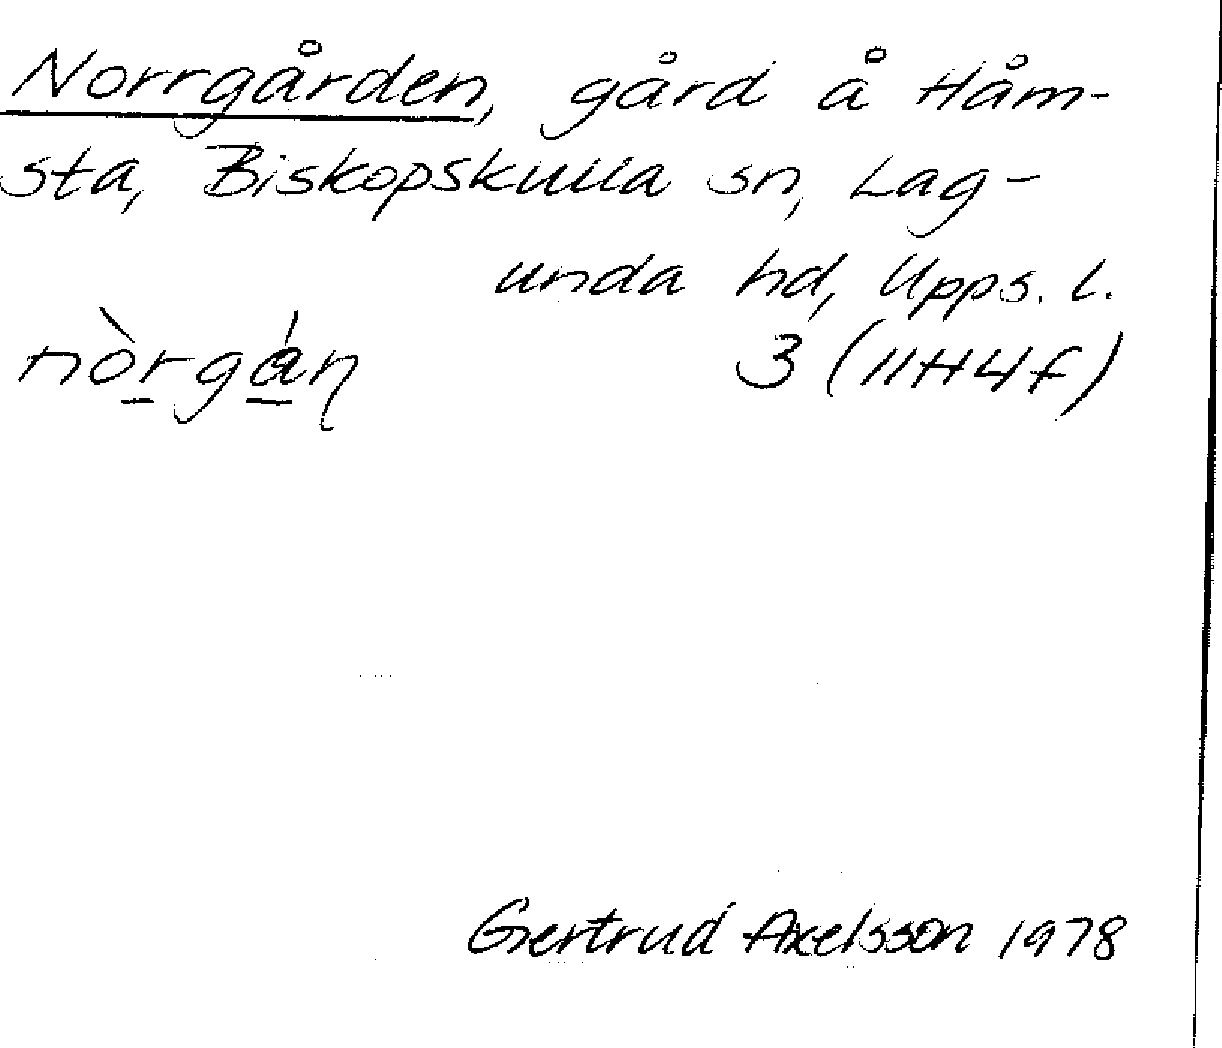 Norrgården, gård å Håm-
sta, Biskopskulla sn, Lag-
unda hd, Upps. l.
nòrgán 3 (11H4f)
Gertrud Axelsson 1978